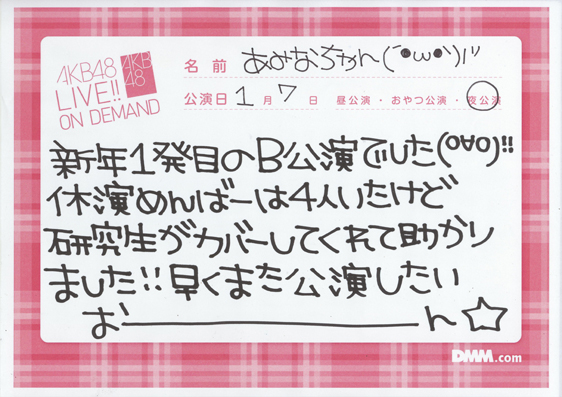 AKB48
LIVE!!
ON DEMAND
AKB
48
名前 あみなちゃん(´●ω●`)ノ"
公演日 1月7日 昼公演・おやつ公演・夜公演
新年1発目のB公演でした(o∀o)!!
休演めんばーは4人いたけど
研究生がカバーしてくれて助かり
ました!!早くまた公演したい
お―――――ん☆
DMM.com